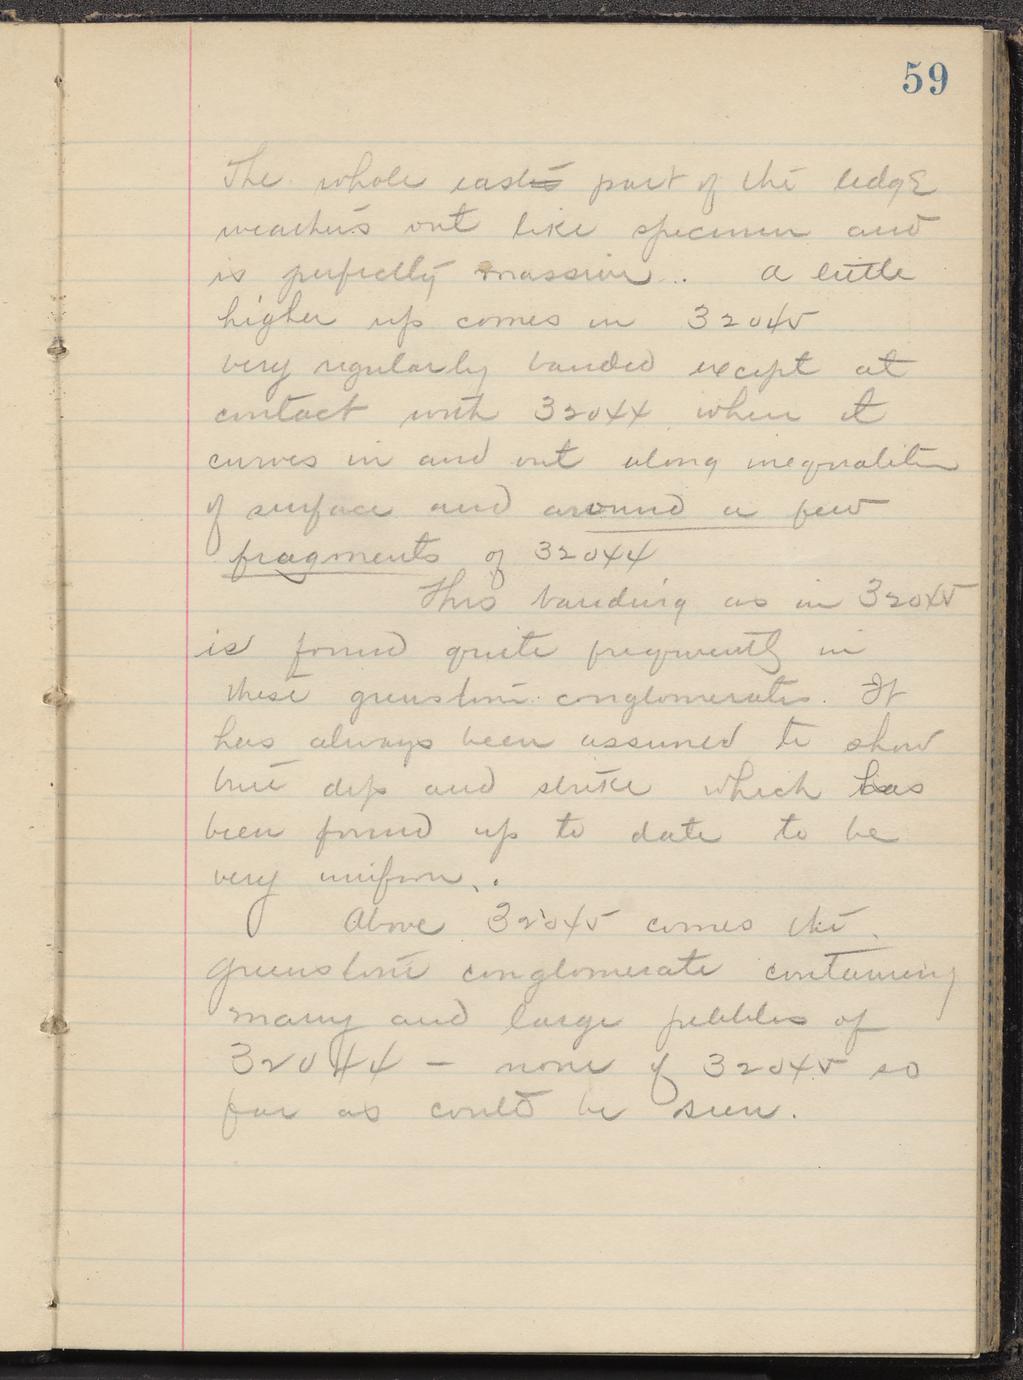 59
The whole east part of the ledge
weathers out like specimen and
is perfectly massive. A little
higher up comes in 32045
very regularly banded except at
contact with 32044 where it
curves in and out along inequalities
of surface and around a few
fragments of 32044
This banding as in 32045
is found quite frequently in
these greenstone conglomerates. It
has always been assumed to show
true dip and strike which has
been found up to date to be
very uniform.
Above 32045 comes the
greenstone conglomerate containing
many and large pebbles of
32044 - none of 32045 so
far as could be seen.